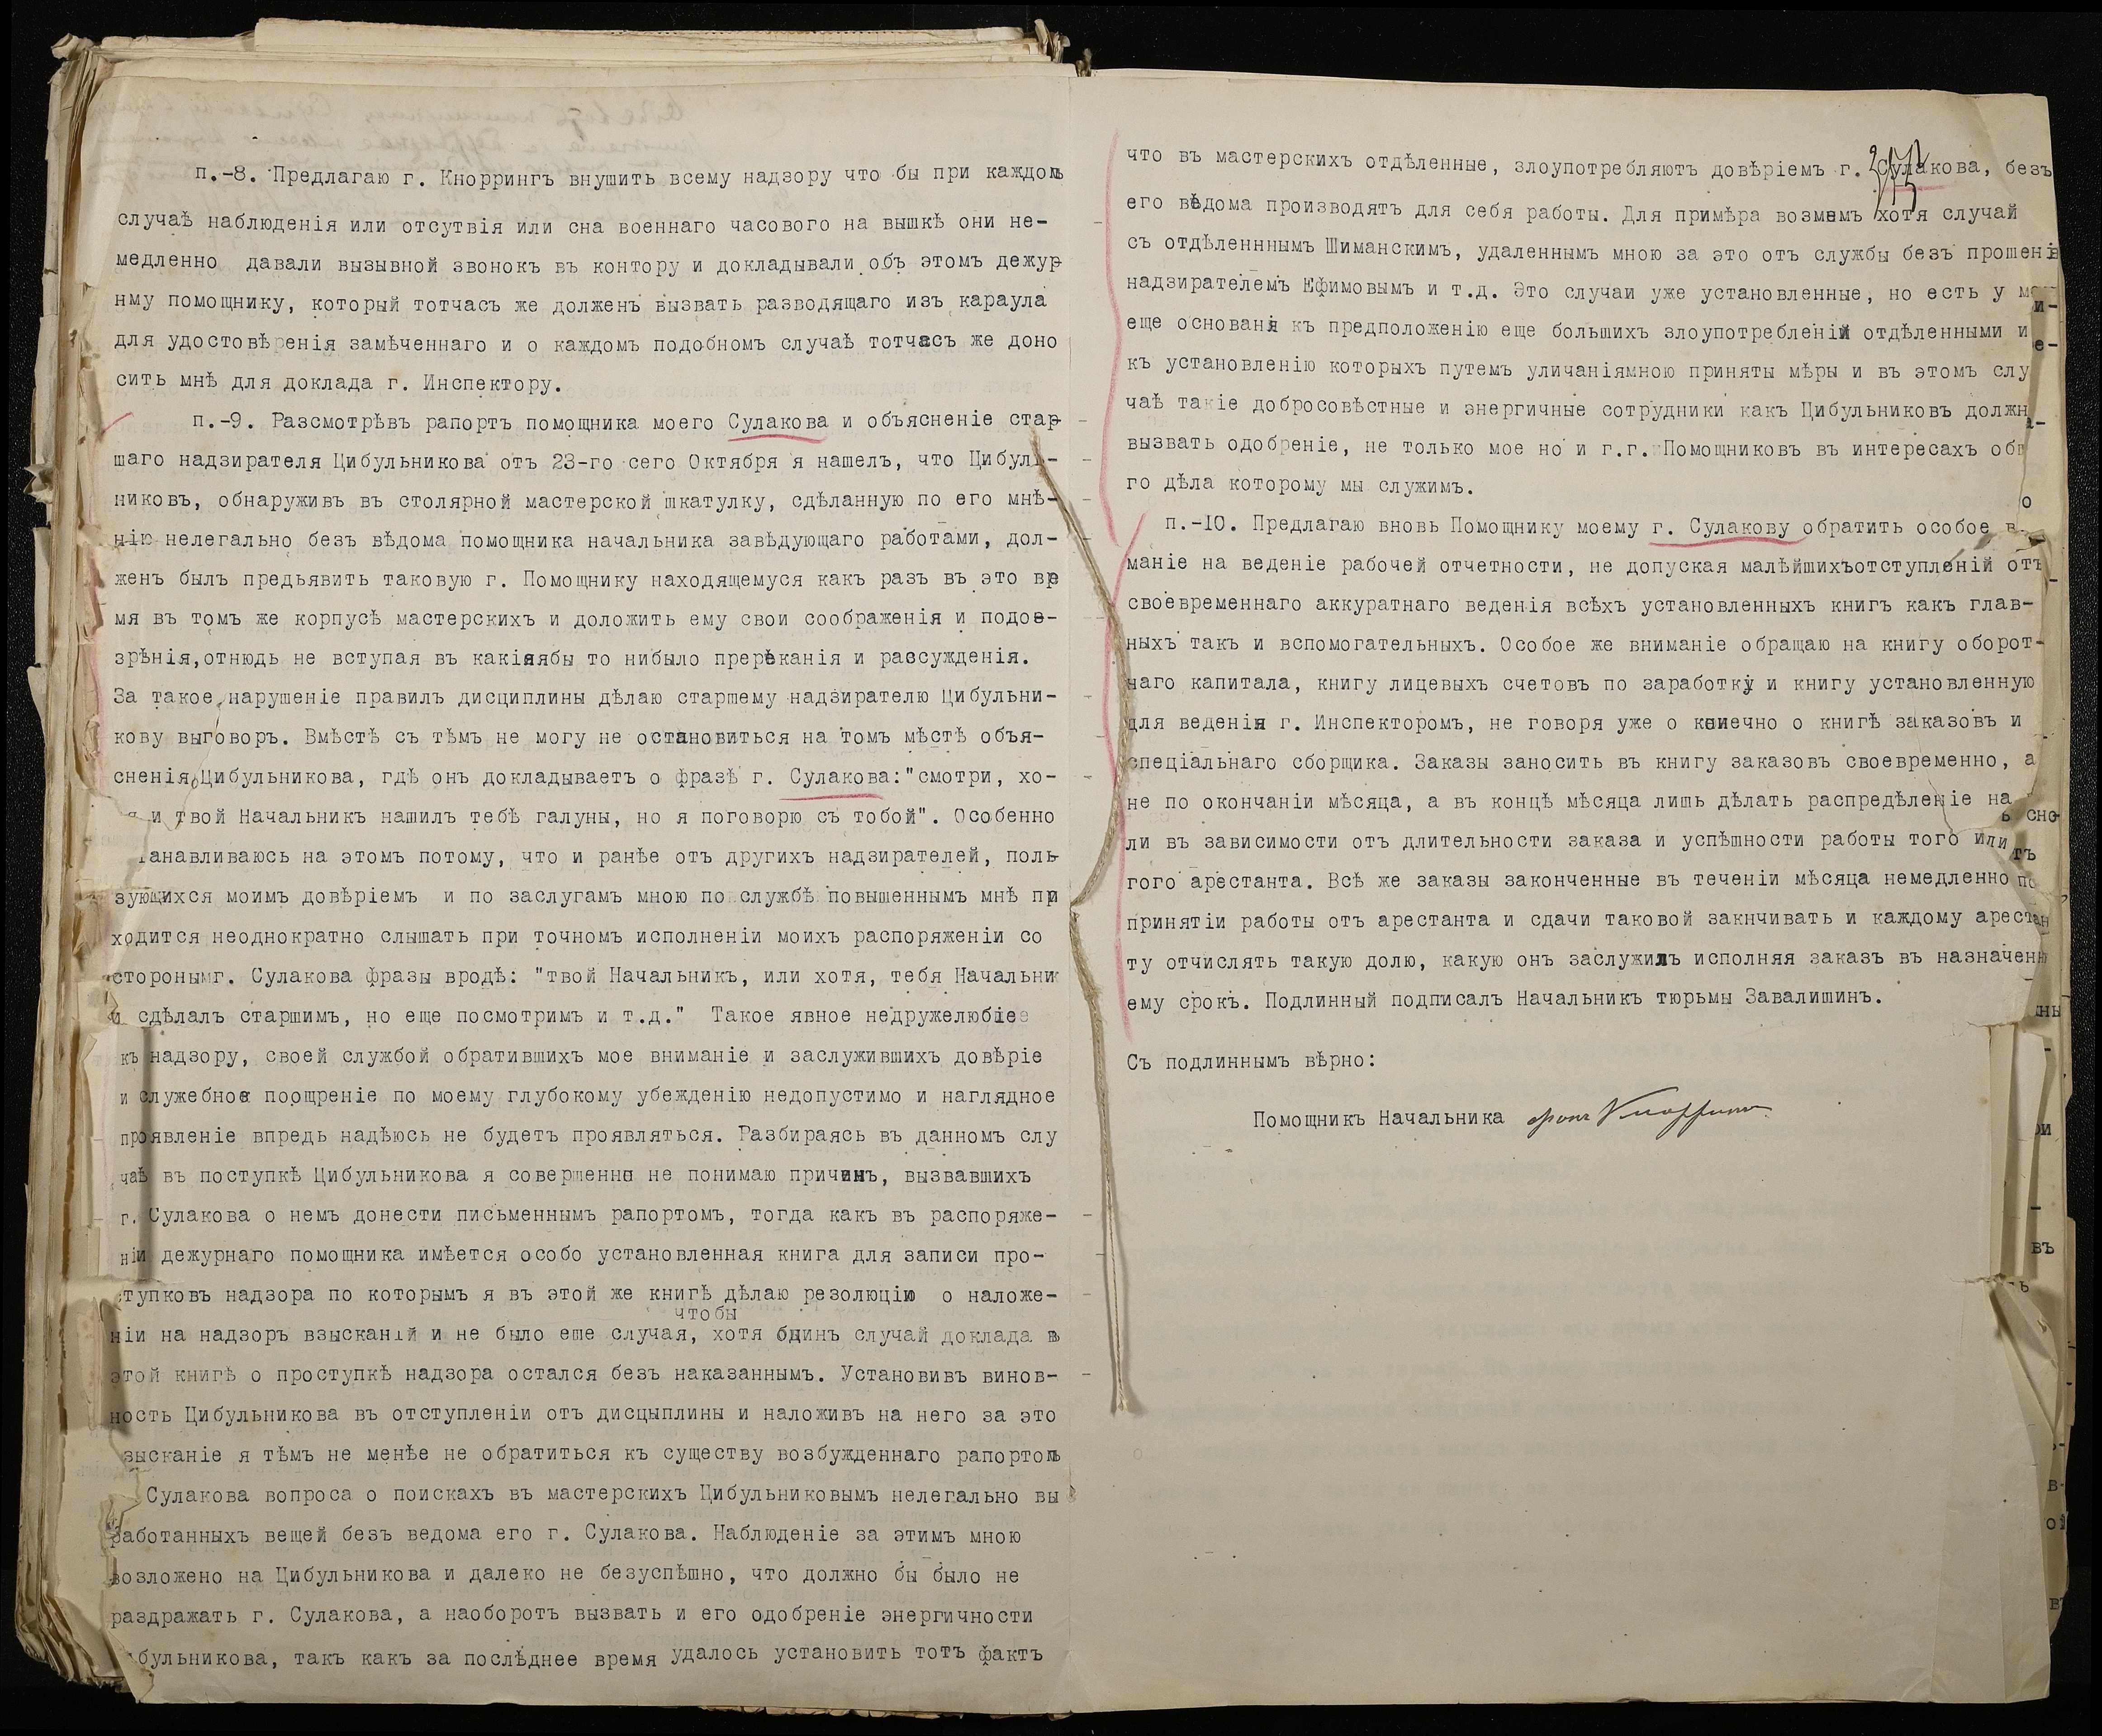 п.-8. Предлагаю г. Кноррингъ внушить всему надзору что бы при каждомъ
случаѣ наблюденія или отсутвія или сна военнаго часового на вышкѣ они не-
медленно давали вызывной звонокъ въ контору и докладывали объ этомъ дежур-
нму помощнику, который тотчасъ же долженъ вызвать разводящаго изъ караула
для удостовѣренія замѣченнаго и о каждомъ подобномъ случаѣ тотчасъ же доно
сить мнѣ для доклада г. Инспектору.
п.-9. Разсмотрѣвъ рапортъ помощника моего Сулакова и объясненіе стар-
шаго надзирателя Цибульникова отъ 23-го сего Октября я нашелъ, что Цибуль-
никовъ, обнаруживъ въ столярной мастерской шкатулку, сдѣланную по его мнѣ-
нію нелегально безъ вѣдома помощника начальника завѣдующаго работами, дол-
женъ былъ предьявить таковую г. Помощнику находящемуся какъ разъ въ это вре
мя въ томъ же корпусѣ мастерскихъ и доложить ему свои соображенія и подов-
зрѣнія,отнюдь не вступая въ какіяябы то нибыло пререканія и разсужденія.
За такое нарушеніе правилъ дисциплины дѣлаю старшему надзирателю Цибульни-
кову выговоръ. Вмѣстѣ съ тѣмъ не могу не остановиться на томъ мѣстѣ объя-
сненія Цибульникова, гдѣ онъ докладываетъ о фразѣ г. Сулакова:"смотри, хо-
я и твой Начальникъ нашилъ тебѣ галуны, но я поговорю съ тобой". Особенно
танавливаюсь на этомъ потому, что и ранѣе отъ другихъ надзирателей, поль-
зующихся моимъ довѣріемъ и по заслугамъ мною по службѣ повышеннымъ мнѣ при
ходится неоднократно слышать при точномъ исполненіи моихъ распоряженіи со
сторонымг. Сулакова фразы вродѣ: "твой Начальникъ, или хотя, тебя Начальник
и сдѣлалъ старшимъ, но еще посмотримъ и т.д." Такое явное недружелюбіе
къ надзору, своей службой обратившихъ мое вниманіе и заслужившихъ довѣріе
и служебное поощреніе по моему глубокому убежденію недопустимо и наглядное
проявленіе впредь надѣюсь не будетъ проявляться. Разбираясь въ данномъ слу
чаѣ въ поступкѣ Цибульникова я совершенно не понимаю причинъ, вызвавшихъ
г. Сулакова о немъ донести письменнымъ рапортомъ, тогда какъ въ распоряже-
ніи дежурнаго помощника имѣется особо установленная книга для записи про-
ступковъ надзора по которымъ я въ этой же книгѣ дѣлаю резолюцію о наложе-
чтобы
ніи на надзоръ взысканій и не было еше случая, хотя одинъ случай доклада въ
этой книгѣ о проступкѣ надзора остался безъ наказаннымъ. Установивъ винов-
ность Цибульникова въ отступленіи отъ дисцыплины и наложивъ на него за это
зысканіе я тѣмъ не менѣе не обратиться къ существу возбужденнаго рапортомъ
Сулакова вопроса о поискахъ въ мастерскихъ Цибульниковымъ нелегально вы
работанныхъ вещей безъ ведома его г. Сулакова. Наблюденіе за этимъ мною
возложено на Цибульникова и далеко не безуспѣшно, что должно бы было не
раздражать г. Сулакова, а наоборотъ вызвать и его одобреніе энергичности
ибульникова, такъ какъ за послѣднее время удалось установить тотъ фактъ
что въ мастерскихъ отдѣленные, злоупотребляютъ довѣріемъ г. Сулакова, безъ
его вѣдома производятъ для себя работы. Для примѣра возмемъ хотя случай
съ отдѣленннымъ Шиманскимъ, удаленнымъ мною за это отъ службы безъ прошенія
надзирателемъ Ефимовымъ и т.д. Это случаи уже установленные, но есть у м
еще основаня къ предположенію еще большихъ злоупотребленій отдѣленными и
къ установленію которыхъ путемъ уличаніямною приняты мѣры и въ этомъ слу
чаѣ такіе добросовѣстные и энергичные сотрудники какъ Цибульниковъ должн
вызвать одобреніе, не только мое но и г.г. Помощниковъ въ интересахъ общ
го дѣла которому мы служимъ.
п.-10. Предлагаю вновь Помощнику моему г. Сулакову обратить особое в
маніе на веденіе рабочей отчетности, не допуская малѣйшихъотступленій отъ
своевременнаго аккуратнаго веденія всѣхъ установленныхъ книгъ какъ глав-
ныхъ такъ и вспомогательныхъ. Особое же вниманіе обращаю на книгу оборот-
наго капитала, книгу лицевыхъ счетовъ по заработку и книгу установленную
для веденія г. Инспекторомъ, не говоря уже о конечно о книгѣ заказовъ и
спеціальнаго сборщика. Заказы заносить въ книгу заказовъ своевременно, а
не по окончаніи мѣсяца, а въ концѣ мѣсяца лишь дѣлать распредѣленіе на
ли въ зависимости отъ длительности заказа и успѣшности работы того или
гого арестанта. Всѣ же заказы законченные въ теченіи мѣсяца немедленно по
принятіи работы отъ арестанта и сдачи таковой закнчивать и каждому арестан
ту отчислять такую долю, какую онъ заслужилъ исполняя заказъ въ назначенн
ему срокъ. Подлинный подписалъ Начальникъ тюрьмы Завалишинъ.
Съ подлиннымъ вѣрно:
Помощникъ Начальника фонъ Кнорринг